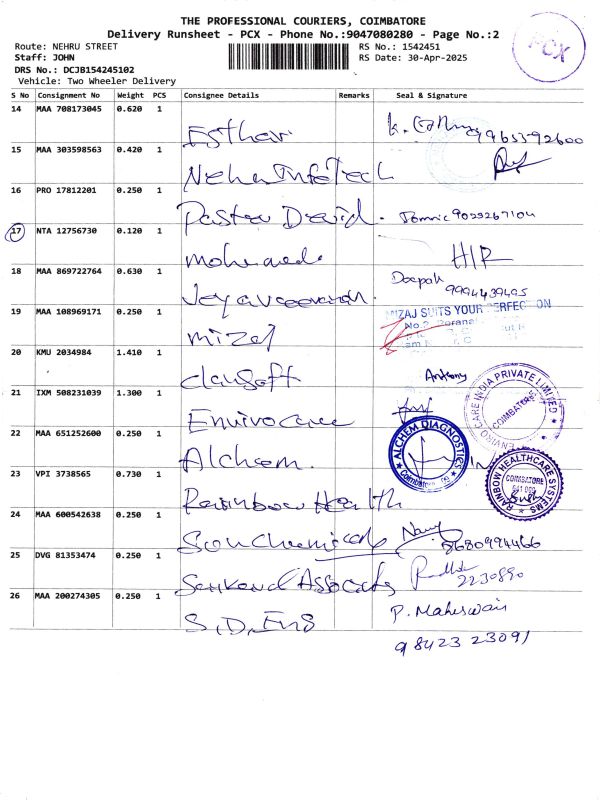 THE PROFESSIONAL COURIERS, COIMBATORE
Delivery Runsheet - PCX - Phone No.:9047080280 - Page No.:2
Route: NEHRU STREET
RS No.: 1542451
Staff: JOHN
RS Date: 30-Apr-2025
DRS No.: DCJB154245102
Vehicle: Two Wheeler Delivery
PCX
S No Consignment No Weight PCS Consignee Details Remarks Seal & Signature
14 MAA 708173045 0.620 1 Esther
15 MAA 303598563 0.420 1 Neha Infotech
16 PRO 17812201 0.250 1 Pastor David.
17 NTA 12756730 0.120 1 H/R
18 MAA 869722764 0.630 1 Deepak 9994439495
19 MAA 108969171 0.250 1 Mizaj MIZAJ SUITS YOUR PERFECTION
20 KMU 2034984 1.410 1 Antony
21 IXM 508231039 1.300 1 Envirocare ENVIRO CARE INDIA PRIVATE LIMITED COIMBATORE
22 MAA 651252600 0.250 1 Alchem. ALCHEM DIAGNOSTICS Coimbatore
23 VPI 3738565 0.730 1 Rainbow Health RAINBOW HEALTHCARE SYSTEMS COIMBATORE
24 MAA 600542638 0.250 1 8680994466
25 DVG 81353474 0.250 1 2230890
26 MAA 200274305 0.250 1 S.D. Eng P. Maheswari
98423 23091